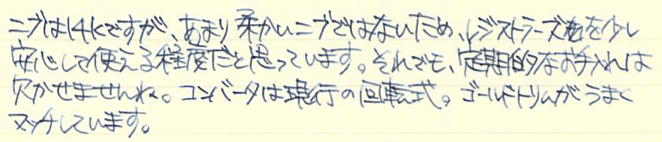 ニブは14Kですが、あまり柔かいニブではないため、レジストラーズ等を少し
安心して使える程度だと思っています。それでも、定期的なお手入れは
欠かせませんね。コンバータは現行の回転式。ゴールドトリムがうまく
マッチしています。